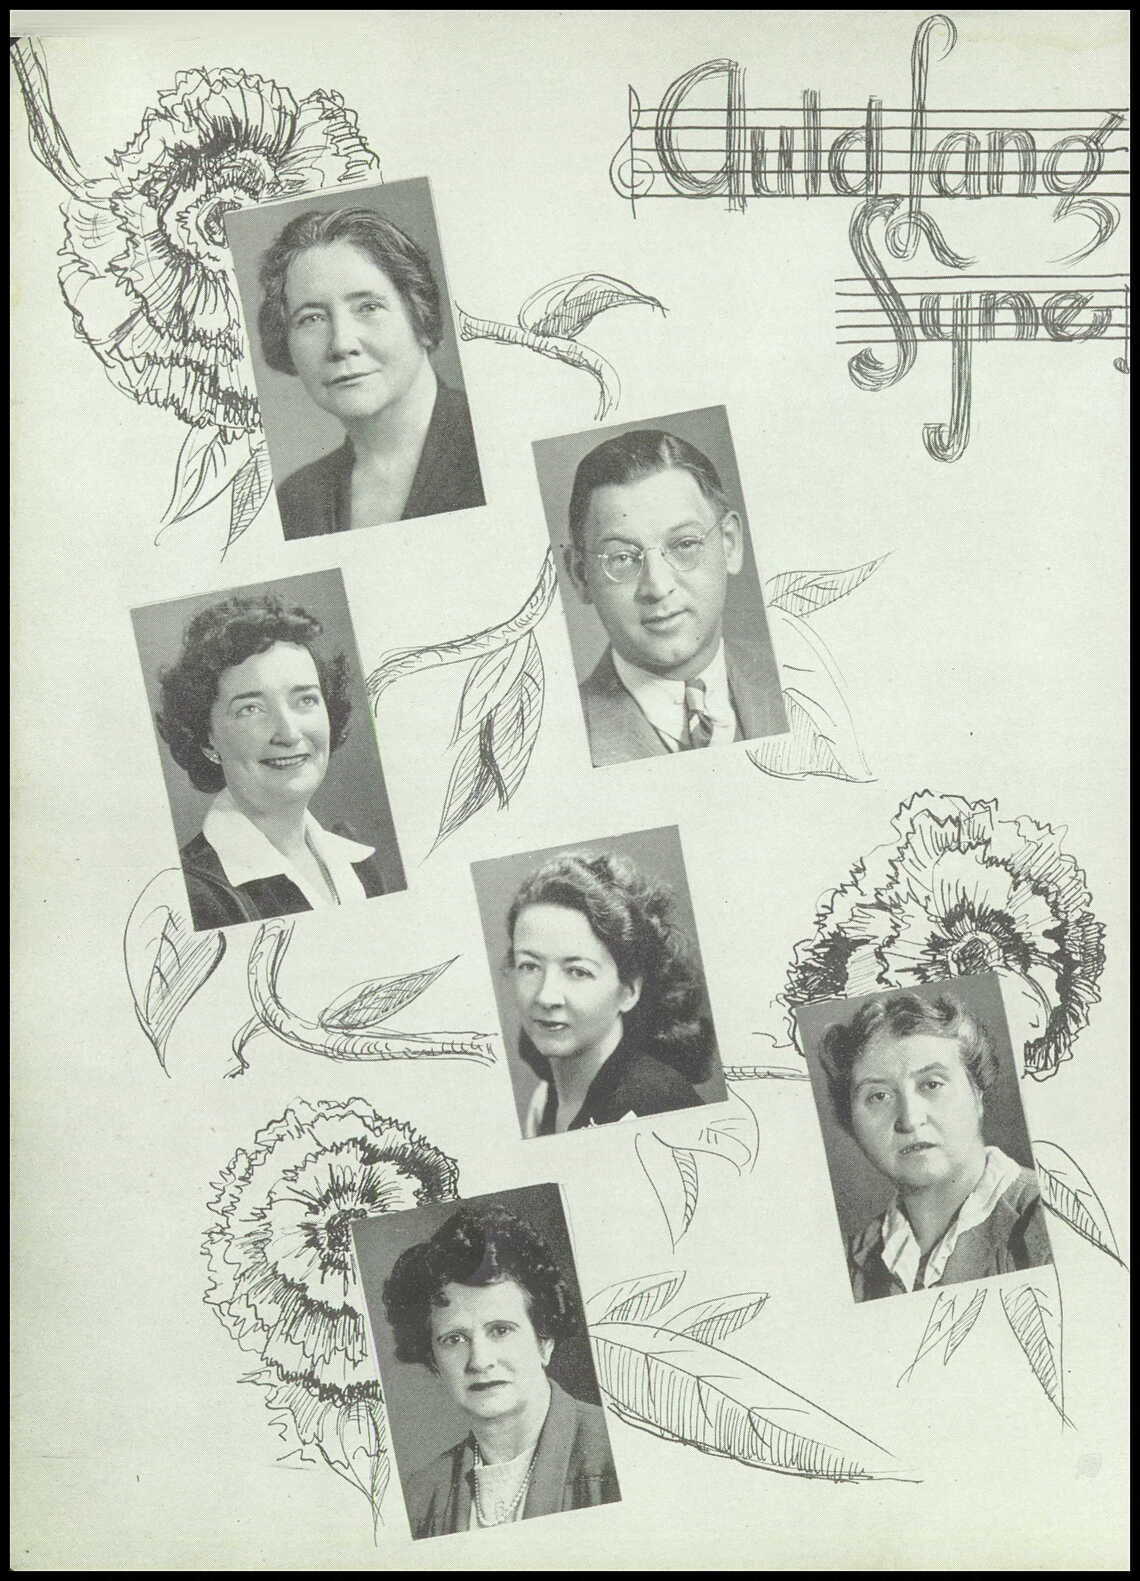 Auld Lang
Syne